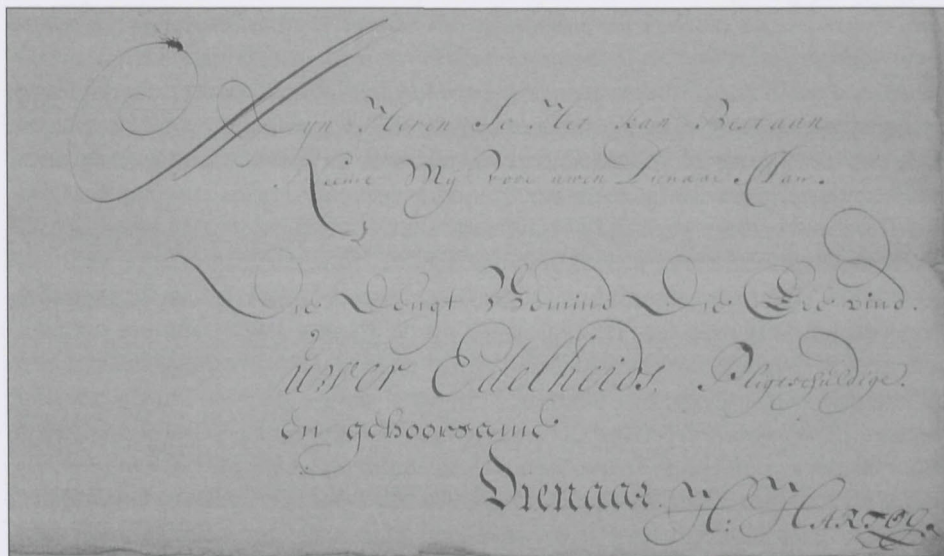 Myn Heren So Het kan Bestaan
Neemt Mij voor uwen Dienaar Aan.
Die Deugt Bemind Die Eere vind.
uwer Edelheids. Pligtschuldige.
en gehoorsame
Dienaar. H: HARTZOG.